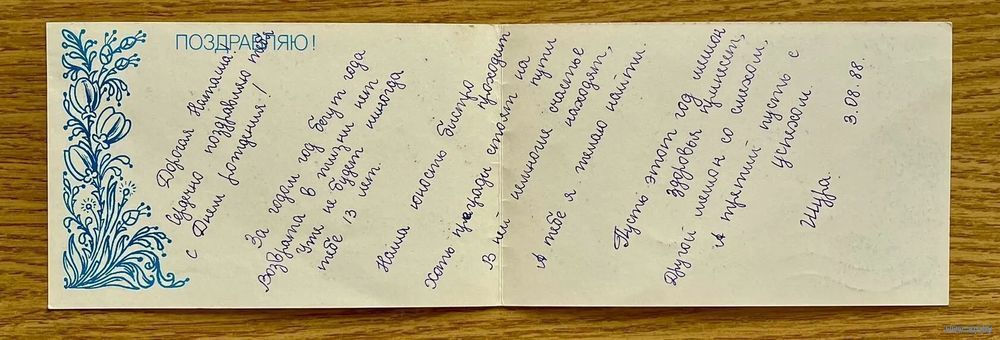 ПОЗДРАВЛЯЮ!
Дорогая Наташа!
Сердечно поздравляю тебя
с Днем рождения!
За годом год бегут года
Возврата в жизни нет
Уже не будет никогда
тебе 13 лет.
Наша юность быстро проходит
хоть преграды стоят на пути
В ней немногие счастье находят,
А тебе я желаю найти.
Пусть этот год мешок
здоровья принесет,
Другой мешок со смехом,
А третий пусть с
успехом.
Шура.
3.08.88.